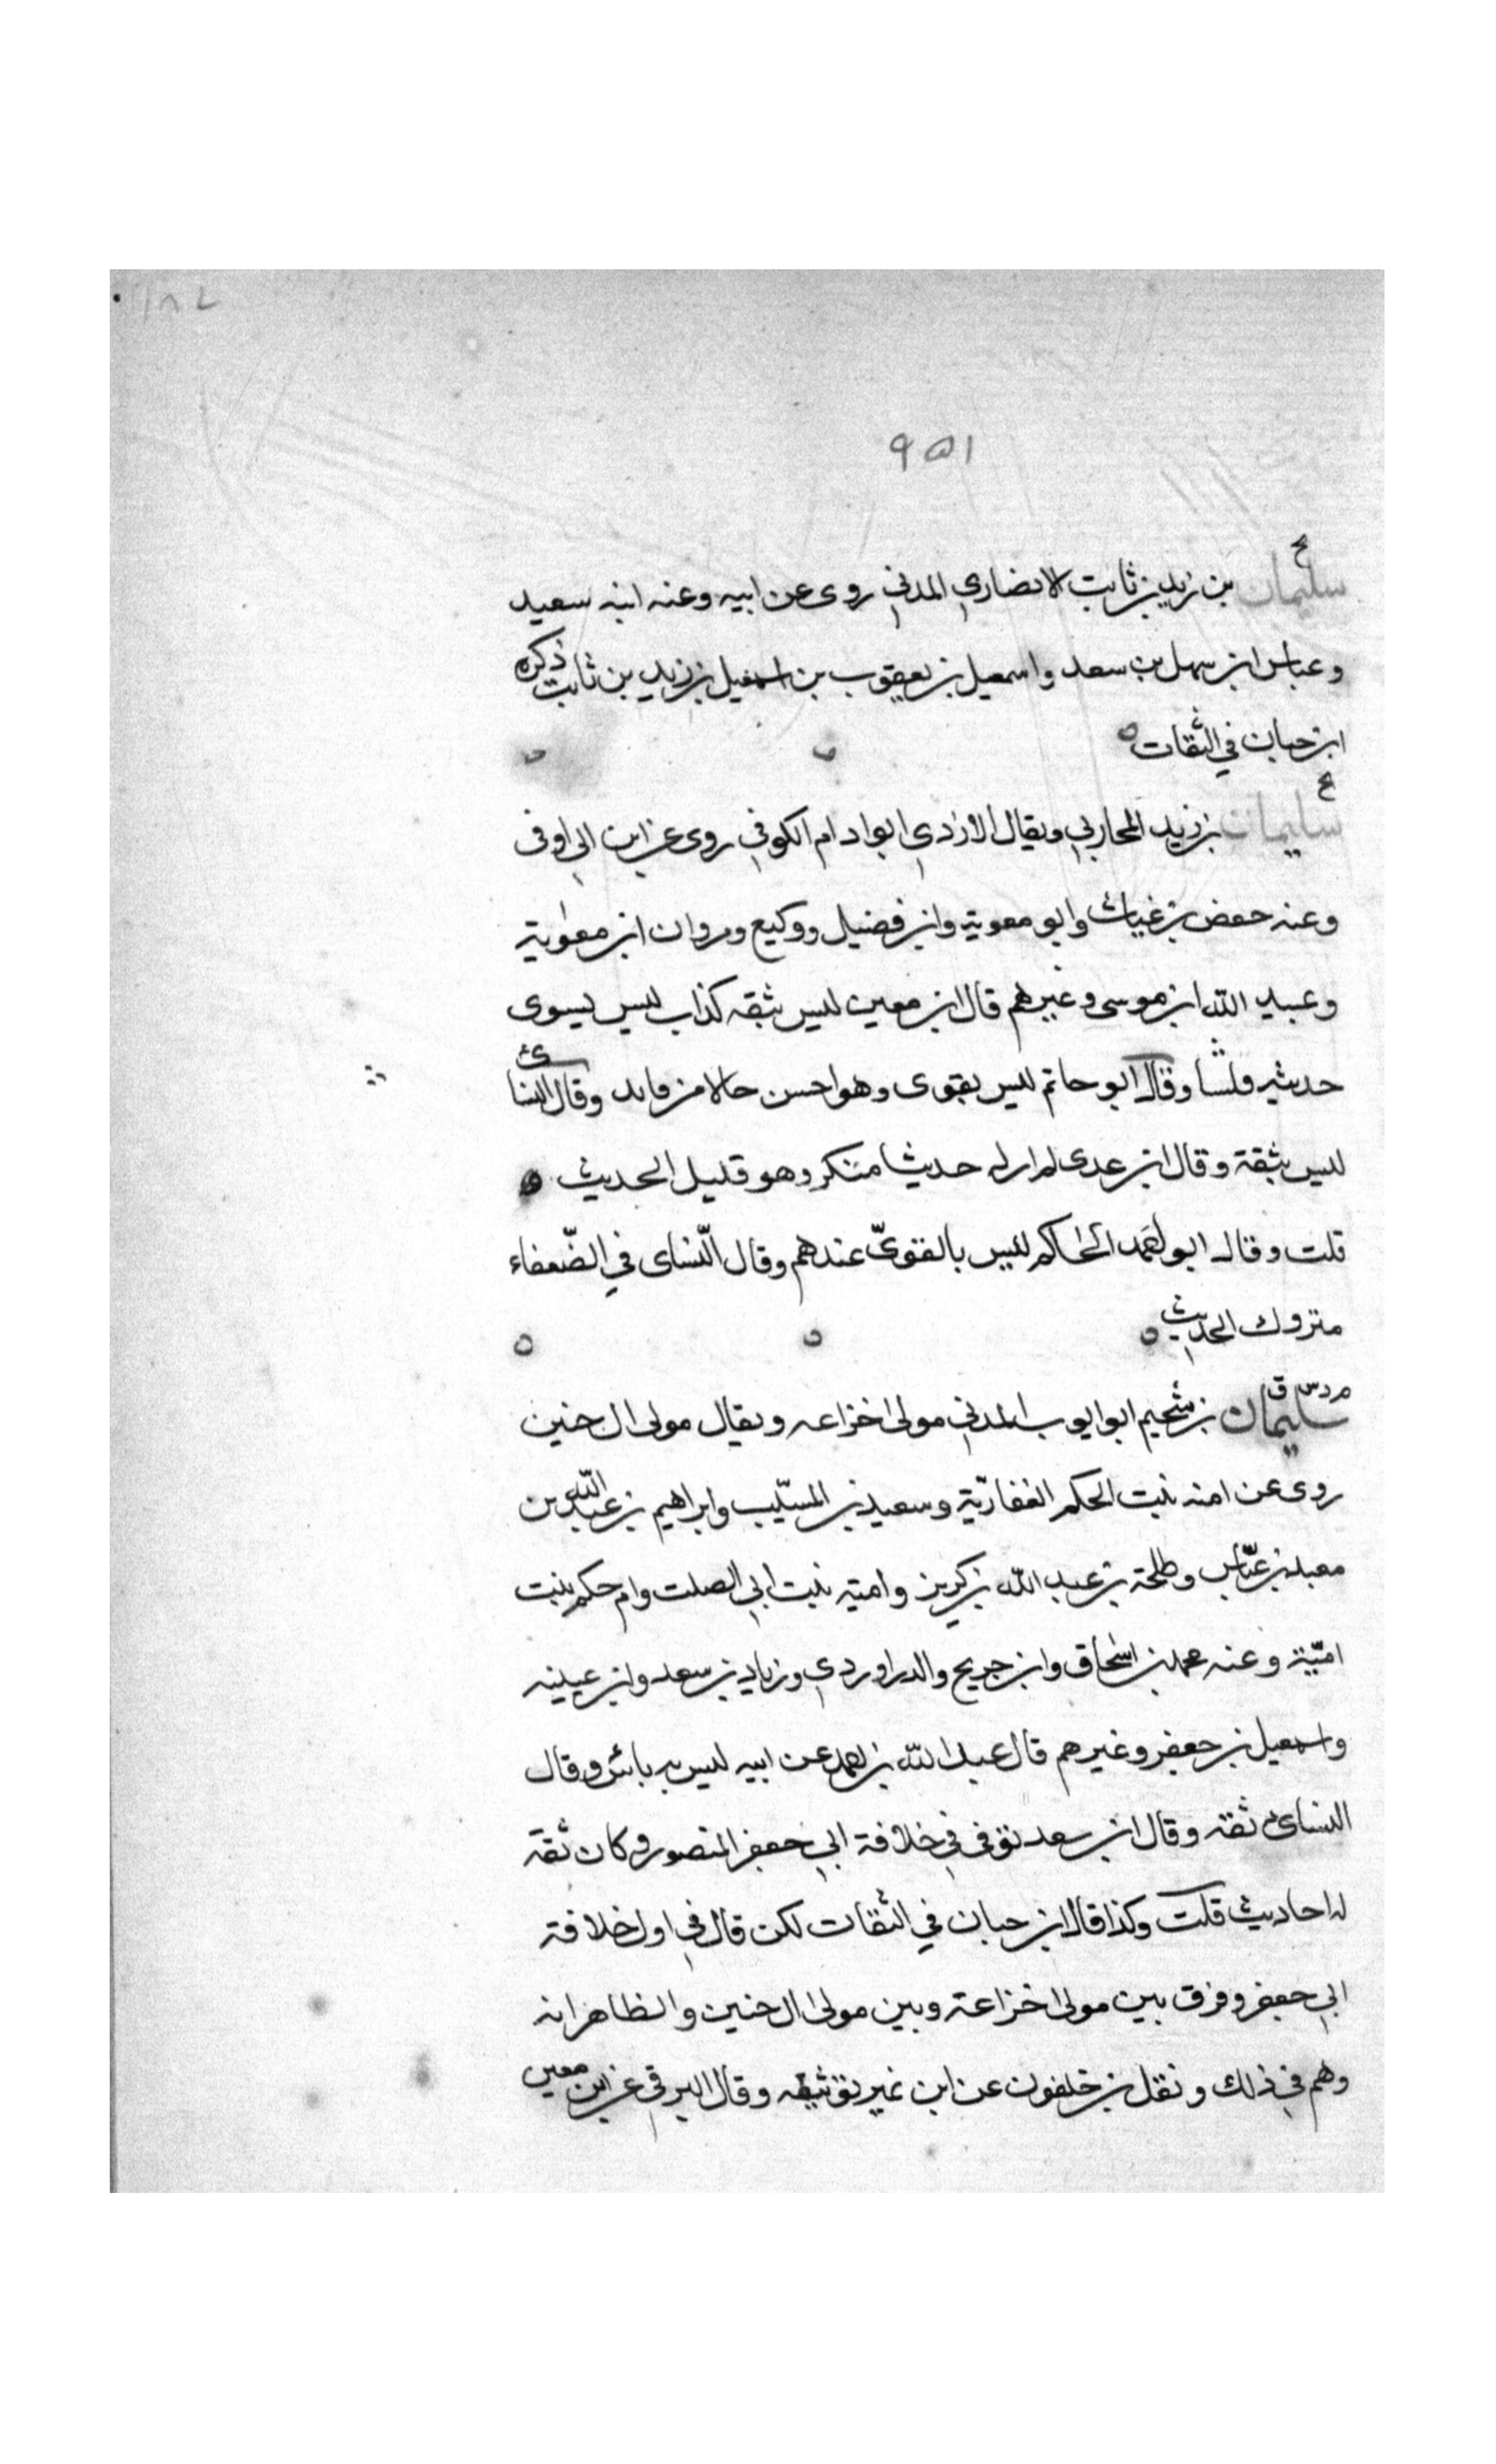 ١٨٢
٩٥١
خ
سليمان بن زيد بن ثابت لانصاري المدني روى عن ابيه وعنه ابنه سعيد
وعباس ابن سهل بن سعد واسمعيل بن يعقوب بن اسمعيل بن زيد بن ثابت ذكره
ابن حبان في الثقات ه
بخ
سليمان بن زيد المحاربي ويقال الازدي ابو ادام الكوفي روى عن ابن ابي اوفى
وعنه حفص بن غياث وابو معوية وابن فضيل ووكيع ومروان ابن معوية
وعبيد الله ابن موسى وغيرهم قال ابن معين ليس بثقه كذاب ليس يسوى
حديثه فلسا وقال ابو حاتم ليس بقوى وهو احسن حالا من فايد وقال النسائ
ليس بثقة وقال ابن عدى لم ار له حديثا منكر وهو قليل الحديث ه
قلت وقال ابو احمد الحاكم ليس بالقوىّ عندهم وقال النّساى في الضّعفاء
متروك الحديث ه
م د س ق
سليمان بن سُحيم ابو ايوب المدني مولى خزاعه ويقال مولى ال حنين
روى عن امنه بنت الحكم الغفاريّة وسعيد بن المسيّب وابراهيم بن عبد الله بن
معبد بن عبّاس وطلحة بن عبيد الله بن كريز وامية بنت ابي الصلت وام حكم بنت
اميّة وعنه محمد بن اسحاق وابن جريج والدراوردي وزياد بن سعد وابن عيينه
واسمعيل بن جعفر وغيرهم قال عبد الله بن احمد عن ابيه ليس به بائس وقال
النسائ ثقه وقال ابن سعد توفى في خلافة ابي جعفر المنصور وكان ثقة
له احاديث قلت وكذا قال ابن حبان في الثقات لكن قال في اول خلافة
ابي جعفر وفرق بين مولى خزاعة وبين مولى ال حنين والظاهر انه
وهم في ذلك ونقل بن خلفون عن ابن نمير توثيقه وقال البرقي عن ابن معين